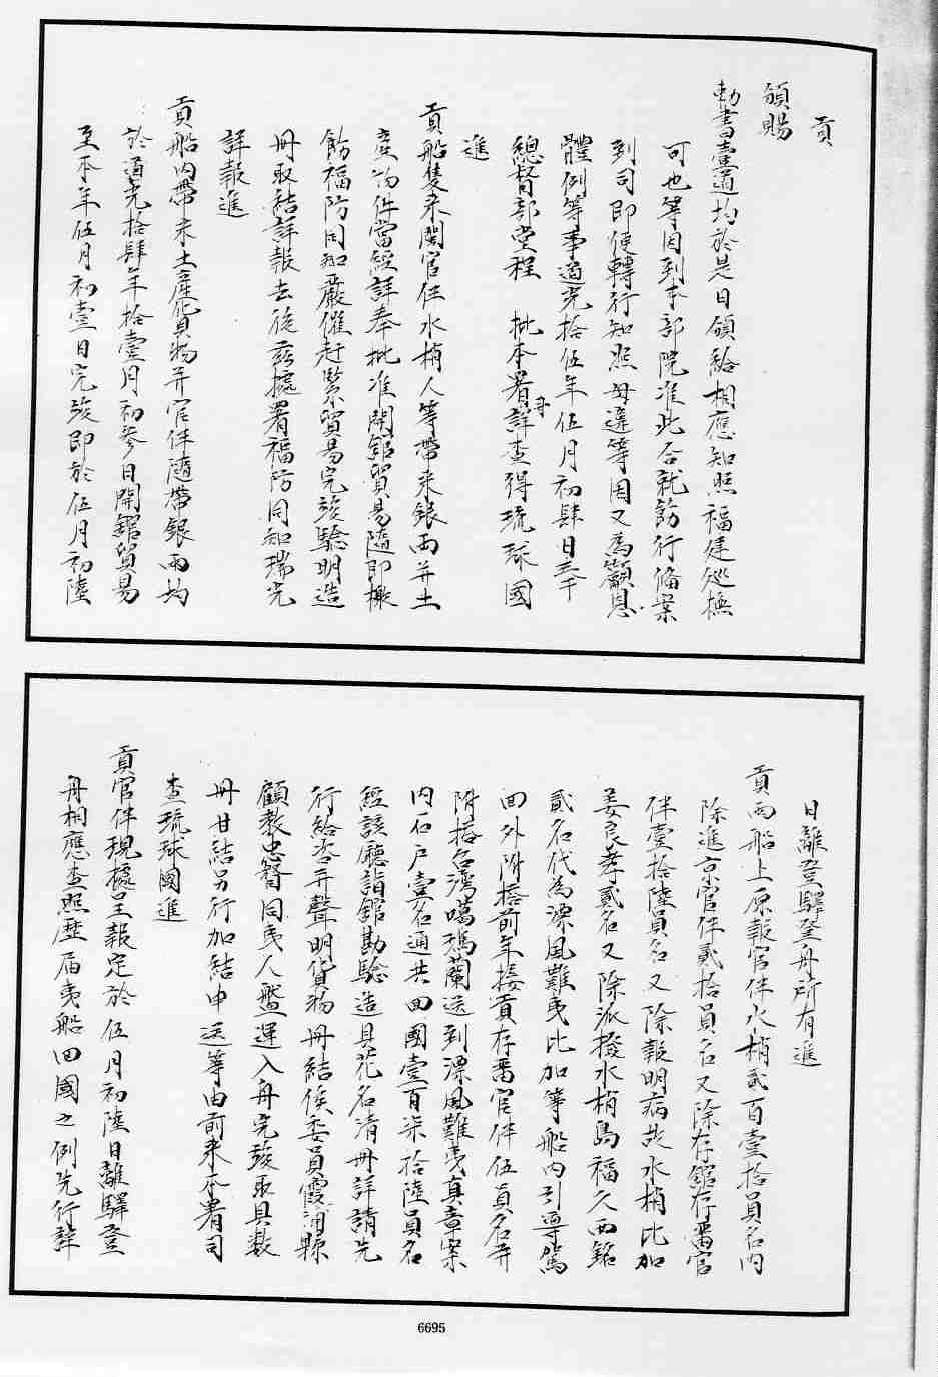 貢
頒賜
勅書壹道均於是日頒給相應知照福建巡撫
可也等因到本部院准此合就飭行備案
到司即便轉行知照毋違等因又為籲恩
體例等事道光拾伍年伍月初肆日奉
總督部堂程 批本署司詳查得琉球國
進
貢船隻來閩官伴水梢人等帶來銀両并土
產物件當經詳奉批准開館貿易隨即檄
飭福防同知嚴催赶緊貿易完竣驗明造
冊取結詳報去後茲據署福防同知瑞完
詳報進
貢船内帶來土產貨物并官伴隨帶銀両均
於道光拾肆年拾壹月初參日開館貿易
至本年伍月初壹日完竣即於伍月初陸
日離驛登舟所有進
貢両船上原報官伴水梢貳百壹拾員名内
除進京官伴貳拾員名又除存館存番官
伴壹拾陸員名又除報明病故水梢比加
姜良孝貳名又除派撥水梢島福久西銘
貳名代為漂風難夷比加等船内引導駕
回外附搭前年接貢存番官伴伍員名并
附搭台灣噶瑪蘭送到漂風難夷真章案
内石戸壹名通共回國壹百柒拾陸員名
經該廳詣館勘驗造具花名清冊詳請先
行給咨并聲明貨物冊結俟委員霞浦縣
顧教忠督同夷人盤運入舟完竣取具數
冊甘結另行加結申送等由前來本署司
查琉球國進
貢官伴現據呈報定於伍月初陸日離驛登
舟相應查照歷届夷船回國之例先行詳
6695